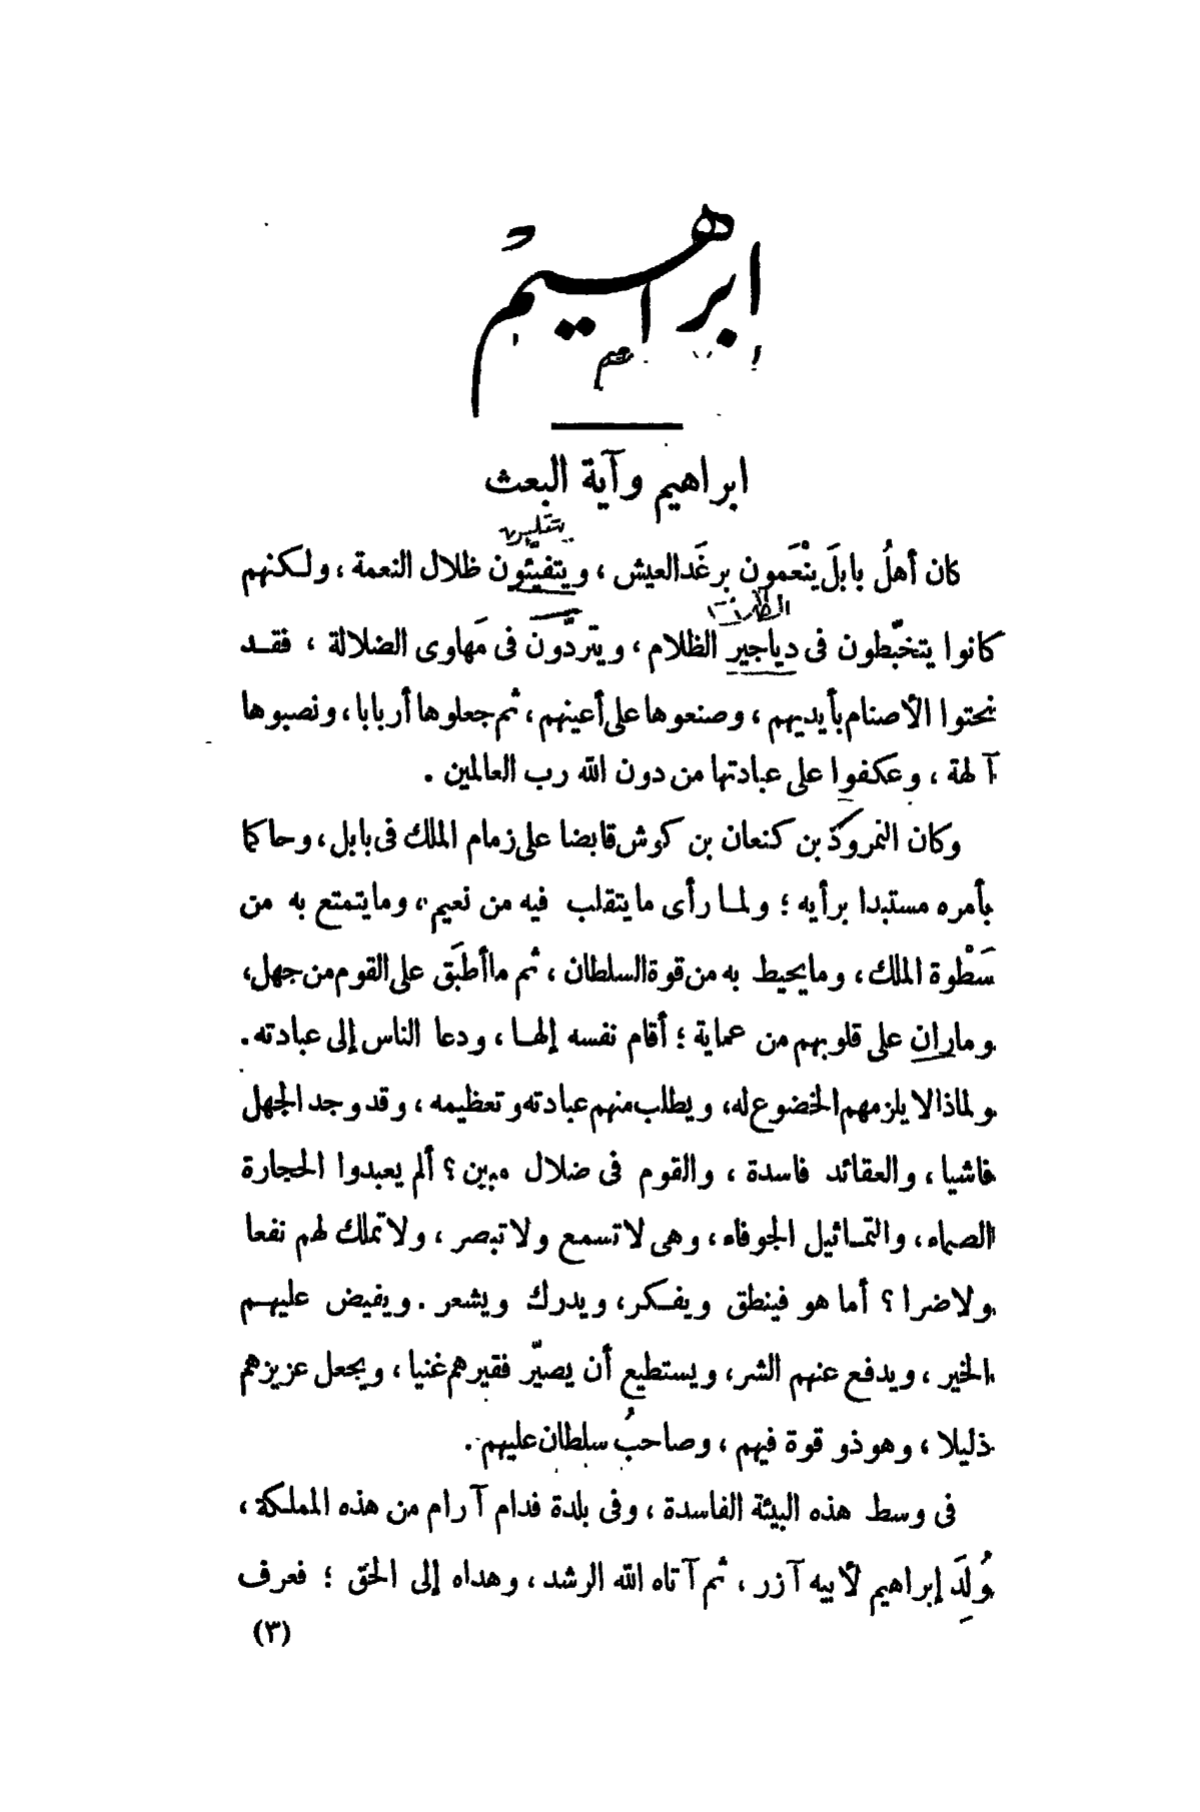 ابراهيم
ابراهيم وآية البعث
كان أهلُ بابلَ ينْعَمون برغَد العيش ، ويتفيئون ظلال النعمة ، ولكنهم
الظلمات
كانوا يتخبّطون فى دياجير الظلام ، ويتردّون فى مَهاوى الضلالة ، فقد
نحتوا الأصنام بأيديهم ، وصنعوها على أعينهم ، ثم جعلوها أربابا ، ونصبوها
آلهة ، وعكفوا على عبادتها من دون الله رب العالمين .
وكان النمروذ بن كنعان بن كوش قابضا على زمام الملك فى بابل ، وحاكما
بأمره مستبدا برأيه ؛ ولما رأى ما يتقلب فيه من نعيم ، وما يتمتع به من
سَطْوة الملك ، وما يحيط به من قوة السلطان ، ثم ما أطبَق على القوم من جهل ،
وما ران على قلوبهم من عماية ؛ أقام نفسه إلها ، ودعا الناس إلى عبادته .
ولماذا لا يلزمهم الخضوع له ، ويطلب منهم عبادته وتعظيمه ، وقد وجد الجهل
فاشيا ، والعقائد فاسدة ، والقوم فى ضلال مبين ؟ ألم يعبدوا الحجارة
الصماء ، والتماثيل الجوفاء ، وهى لا تسمع ولا تبصر ، ولا تملك لهم نفعا
ولا ضرا ؟ أما هو فينطق ويفكر ، ويدرك ويشعر . ويفيض عليهم
الخير ، ويدفع عنهم الشر ، ويستطيع أن يصيّر فقيرهم غنيا ، ويجعل عزيزهم
ذليلا ، وهو ذو قوة فيهم ، وصاحبُ سلطان عليهم .
فى وسط هذه البيئة الفاسدة ، وفى بلدة فدام آرام من هذه المملكة ،
وُلِدَ إبراهيم لأبيه آزر ، ثم آتاه الله الرشد ، وهداه إلى الحق ؛ فعرف
(٣)